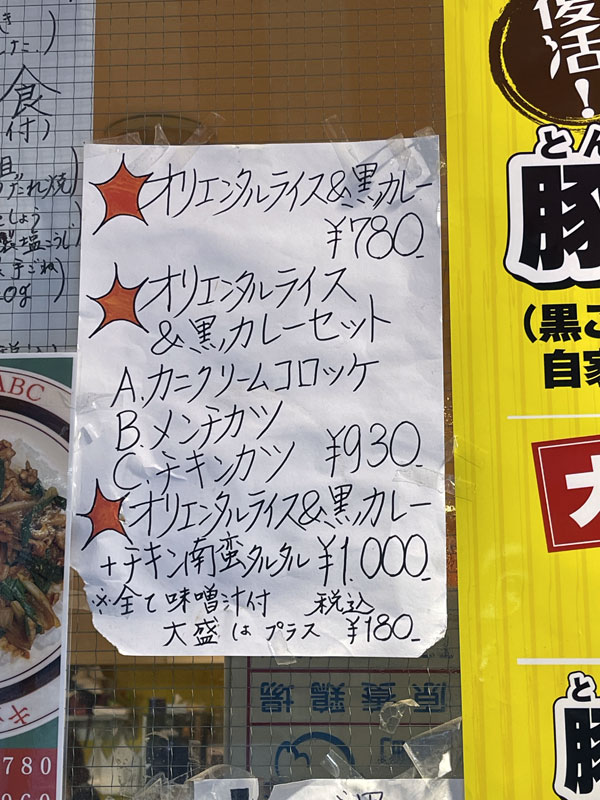 オリエンタルライス&黒カレー
¥780-
オリエンタルライス
&黒カレーセット
A.カニクリームコロッケ
B.メンチカツ
C.チキンカツ ¥930-
オリエンタルライス&黒カレー
+チキン南蛮タルタル ¥1.000-
※全て味噌汁付 税込
大盛はプラス ¥180-
食
付)
しょう
塩こうじ
手ごね
0g)
ABC
780
復活!
とん
豚
(黒こ
自家
カ
と
豚
原養鶏場